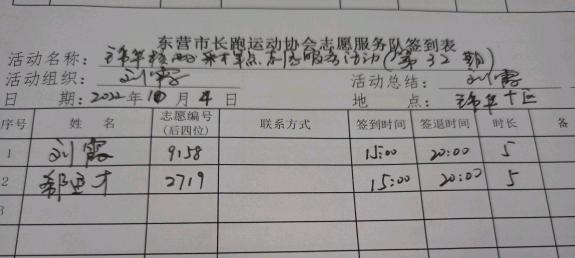 东营市长跑运动协会志愿服务队签到表
活动名称： 核酸采样点志愿服务活动（第32期）
活动组织： 刘霞 活动总结： 刘霞
日 期： 2022年10月4日 地 点： 区
序号 姓 名 志愿编号（后四位） 联系方式 签到时间 签退时间 时长 备
1 刘霞 9158 15:00 20:00 5
2 郝 才 2719 15:00 20:00 5
3